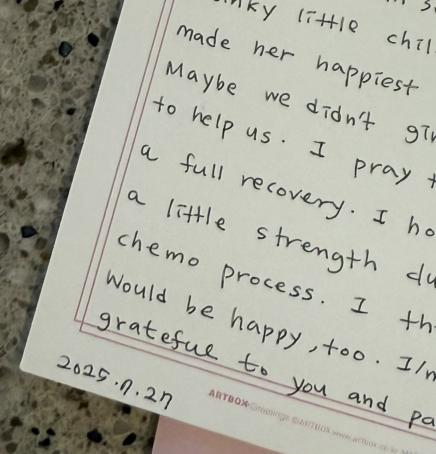 little chil
made her happiest
Maybe we didn't gi
to help us. I pray t
a full recovery. I ho
a little strength du
chemo process. I th
would be happy, too. I'm
grateful to you and pa
2025.7.27
ARTBOX Greetings ©ARTBOX www.artbox.co.kr